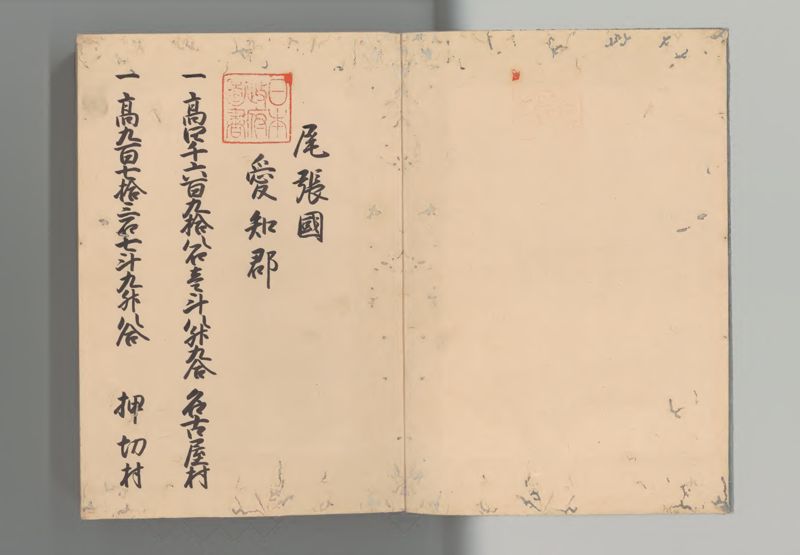 尾張國
愛知郡
日本
政府
圖書
一 高四千六百九拾八石壱斗八升九合 名古屋村
一 高九百七拾三石七斗九升八合 押切村